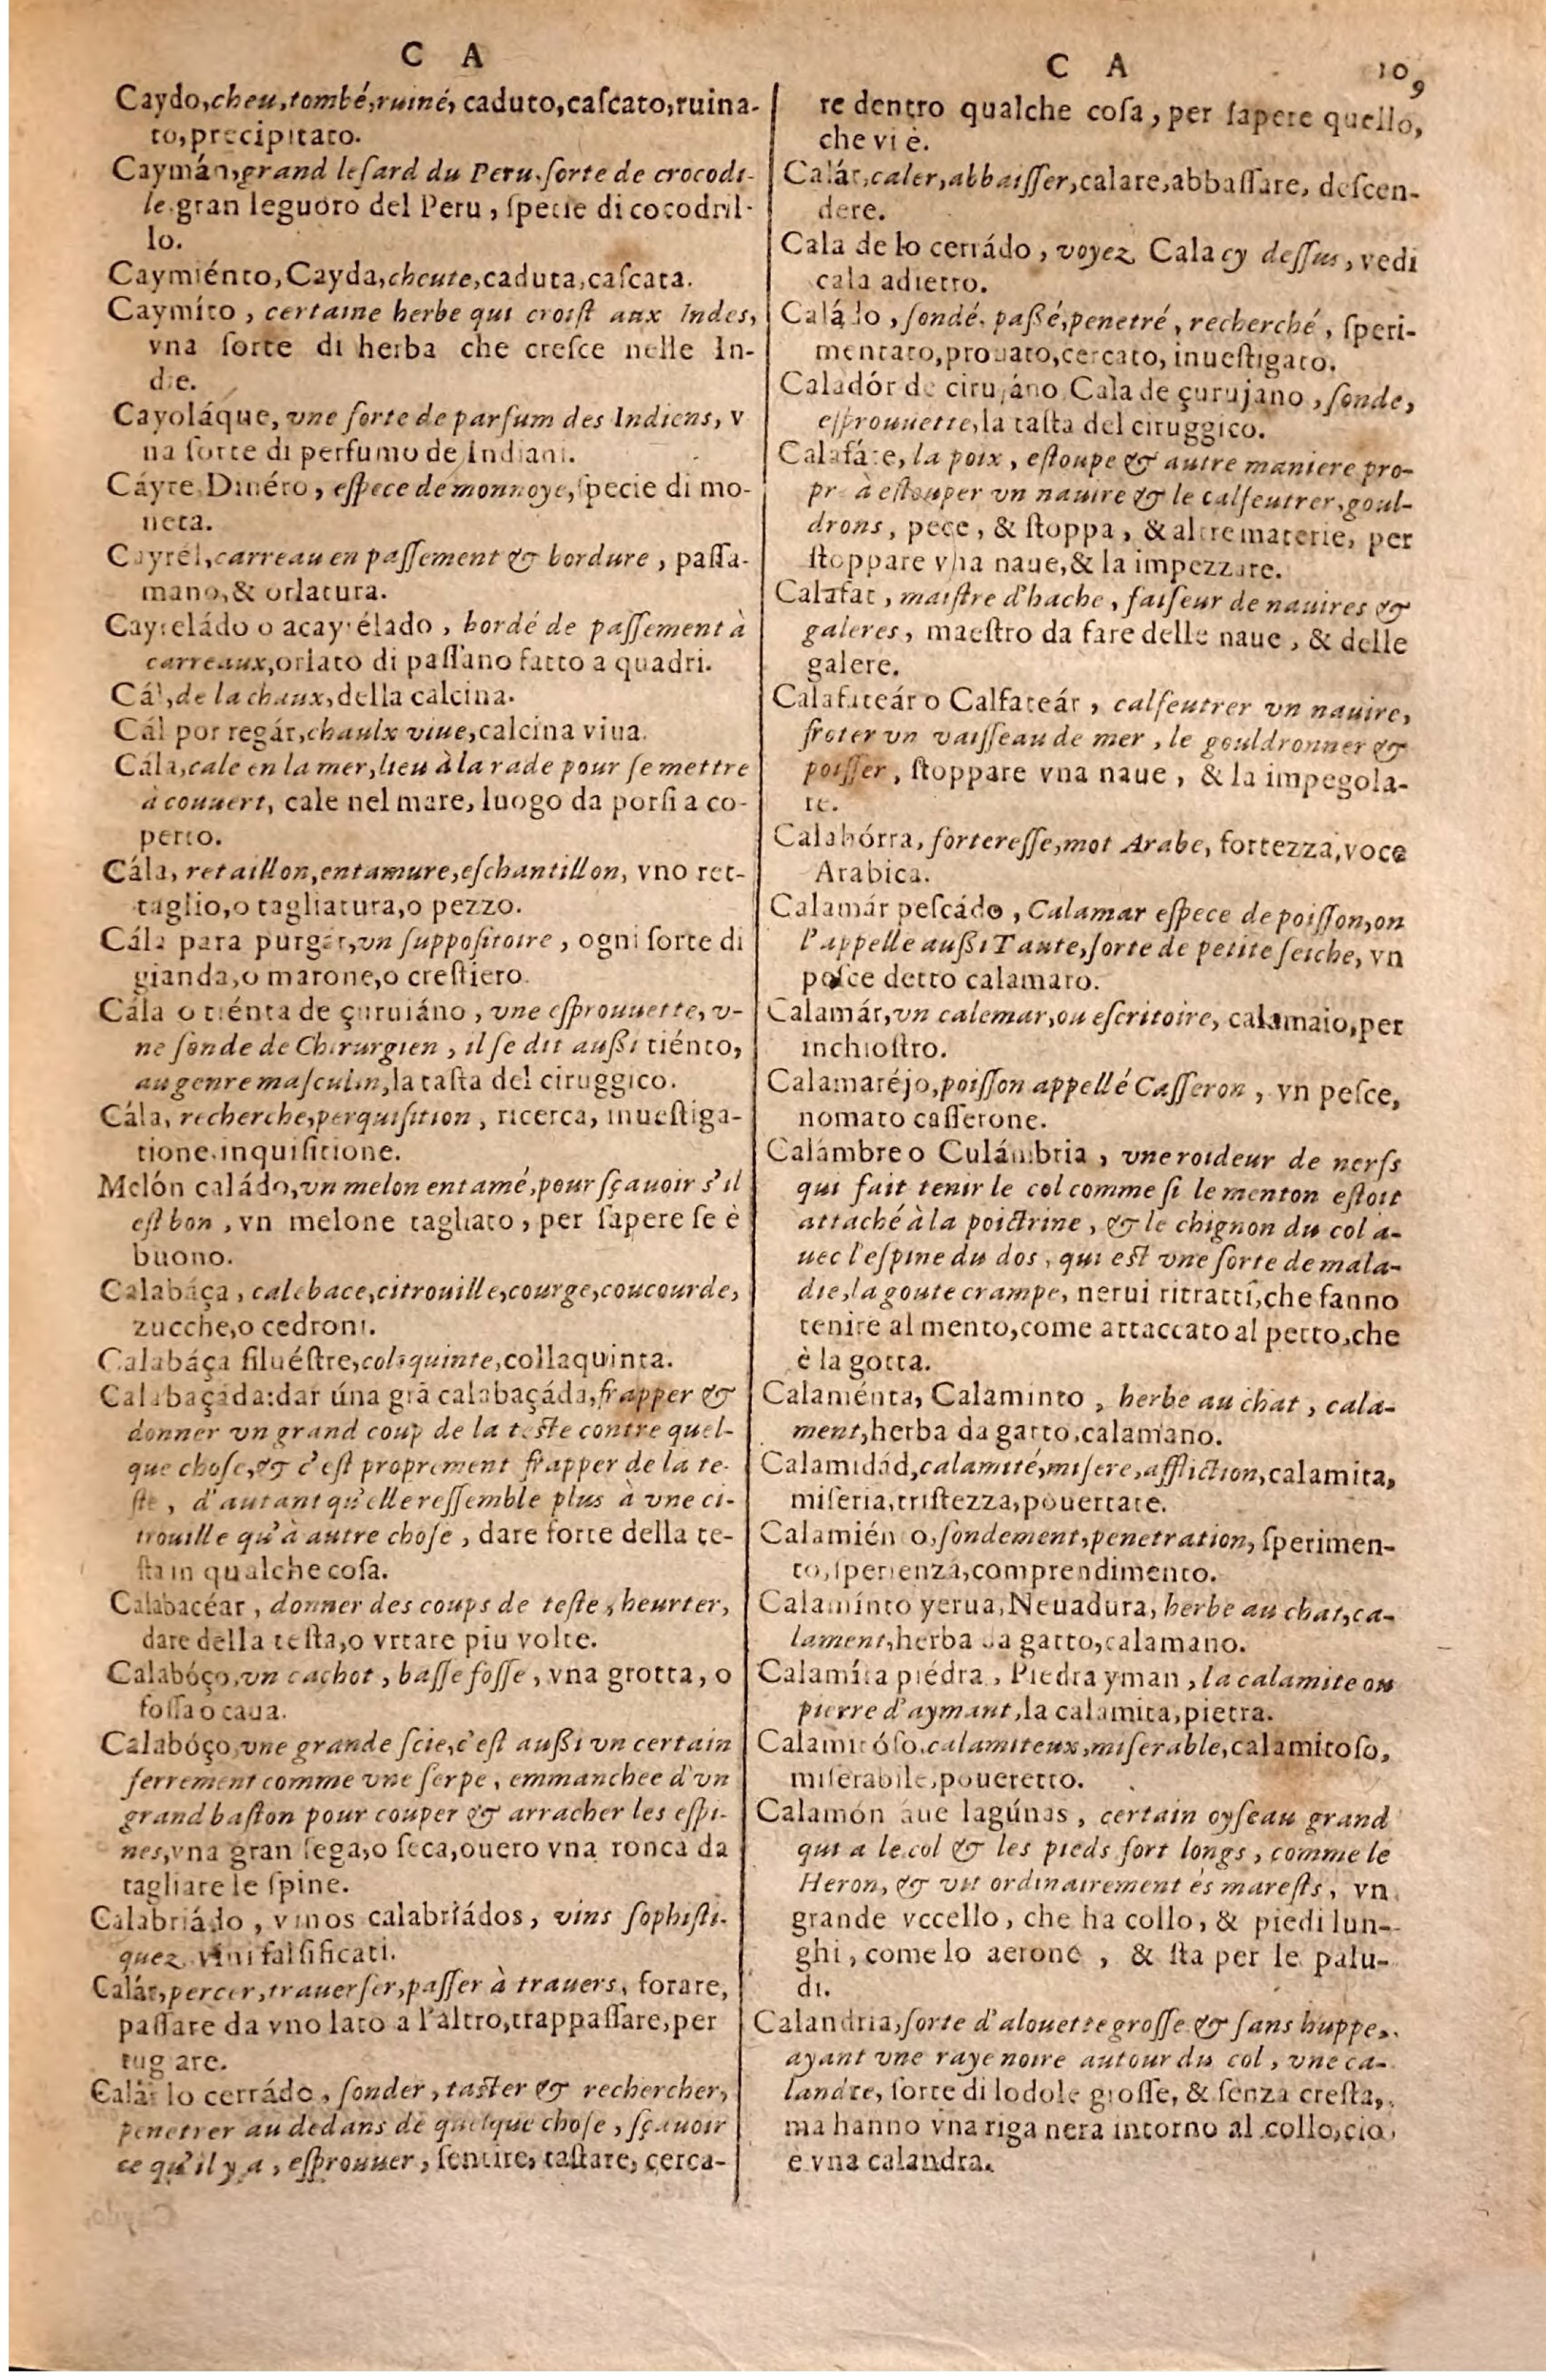 C A
Caydo, cheu, tombé, ruiné, caduto, caſcato, ruina-
to, precipitato.
Caymán, grand leſard du Peru, ſorte de crocodi-
le, gran leguoro del Peru, ſpecie di cocodril-
lo.
Caymiénto, Cayda, cheute, caduta, caſcata.
Caymíto, certaine herbe qui croiſt aux Indes,
vna ſorte di herba che creſce nelle In-
die.
Cayoláque, vne ſorte de parfum des Indiens, v
na ſorte di perfumo de Indiani.
Cáyre Dinéro, eſpece de monnoye, ſpecie di mo-
neta.
Cayrél, carreau en paſſement & bordure, paſſa-
mano, & orlatura.
Cayreládo o acayrélado, bordé de paſſement à
carreaux, orlato di paſſano fatto a quadri.
Cál, de la chaux, della calcina.
Cál por regár, chaulx viue, calcina viua.
Cála, cale en la mer, lieu à la rade pour ſe mettre
à couuert, cale nel mare, luogo da porſi a co-
perto.
Cála, retaillon, entamure, eſchantillon, vno ret-
taglio, o tagliatura, o pezzo.
Cála para purgár, vn ſuppoſitoire, ogni ſorte di
gianda, o marone, o creſtiero.
Cála o tiénta de çuruiáno, vne eſprouuette, v-
ne ſonde de Chirurgien, il ſe dit außi tiénto,
au genre maſculin, la taſta del ciruggico.
Cála, recherche, perquiſition, ricerca, inueſtiga-
tione, inquiſitione.
Melón caládo, vn melon entamé, pour ſçauoir s'il
eſt bon, vn melone tagliato, per ſapere ſe è
buono.
Calabáça, calebace, citrouille, courge, coucourde,
zucche, o cedroni.
Calabáça ſiluéſtre, coloquinte, collaquinta.
Calabaçáda: dar úna grā calabaçáda, frapper &
donner vn grand coup de la teſte contre quel-
que choſe, & c'eſt proprement frapper de la te-
ſte, d'autant qu'elle reſſemble plus à vne ci-
trouille qu'à autre choſe, dare forte della te-
ſta in qualche coſa.
Calabacéar, donner des coups de teſte, heurter,
dare della teſta, o vrtare piu volte.
Calabóço, vn cachot, baſſe foſſe, vna grotta, o
foſſa o caua.
Calabóço, vne grande ſcie, c'eſt außi vn certain
ferrement comme vne ſerpe, emmanchee d'vn
grand baſton pour couper & arracher les eſpi-
nes, vna gran ſega, o ſeca, ouero vna ronca da
tagliare le ſpine.
Calabriádo, vinos calabriádos, vins ſophiſti-
quez, vini falſificati.
Calár, percer, trauerſer, paſſer à trauers, forare,
paſſare da vno lato a l'altro, trappaſſare, per
tug are.
Calár lo cerrádo, ſonder, taſter & rechercher,
penetrer au dedans de quelque choſe, ſçauoir
ce qu'il y a, eſprouuer, ſentire, taſtare, cerca-
C A 109
re dentro qualche coſa, per ſapere quello,
che vi è.
Calár, caler, abbaiſſer, calare, abbaſſare, deſcen-
dere.
Cala de lo cerrádo, voyez Cala cy deſſus, vedi
cala adietro.
Caládo, ſondé, paßé, penetré, recherché, ſperi-
mentato, prouato, cercato, inueſtigato.
Caladór de cirujáno Cala de çurujano, ſonde,
eſprouuette, la taſta del ciruggico.
Calafáte, la poix, eſtoupe & autre maniere pro-
pre à eſtouper vn nauire & le calfeutrer, goul-
drons, pece, & ſtoppa, & altre materie, per
ſtoppare vna naue, & la impezzare.
Calafat, maiſtre d'hache, faiſeur de nauires &
galeres, maeſtro da fare delle naue, & delle
galere.
Calafateár o Calfateár, calfeutrer vn nauire,
froter vn vaiſſeau de mer, le gouldronner &
poiſſer, ſtoppare vna naue, & la impegola-
re.
Calahórra, fortereſſe, mot Arabe, fortezza, voce
Arabica.
Calamár peſcádo, Calamar eſpece de poiſſon, on
l'appelle außi Taute, ſorte de petite ſeiche, vn
peſce detto calamaro.
Calamár, vn calemar, ou eſcritoire, calamaio, per
inchioſtro.
Calamaréjo, poiſſon appellé Caſſeron, vn peſce,
nomato caſſerone.
Calámbre o Culámbria, vne roideur de nerfs
qui fait tenir le col comme ſi le menton eſtoit
attaché à la poictrine, & le chignon du col a-
uec l'eſpine du dos, qui eſt vne ſorte de mala-
die, la goute crampe, nerui ritratti, che fanno
tenire al mento, come attaccato al petto, che
è la gotta.
Calaménta, Calaminto, herbe au chat, cala-
ment, herba da gatto, calamano.
Calamidád, calamité, miſere, affliction, calamita,
miſeria, triſtezza, pouertate.
Calamiénto, ſondement, penetration, ſperimen-
to, ſperienza, comprendimento.
Calamínto yerua, Neuadura, herbe au chat, ca-
lament, herba da gatto, calamano.
Calamíta piédra, Piedra yman, la calamite ou
pierre d'aymant, la calamita, pietra.
Calamitóſo, calamiteux, miſerable, calamitoſo,
miſerabile, poueretto.
Calamón áue lagúnas, certain oyſeau grand
qui a le col & les pieds fort longs, comme le
Heron, & vit ordinairement és mareſts, vn
grande vccello, che ha collo, & piedi lun-
ghi, come lo aerone, & ſta per le palu-
di.
Calandria, ſorte d'alouette groſſe & ſans huppe,
ayant vne raye noire autour du col, vne ca-
landre, ſorte di lodole groſſe, & ſenza creſta,
ma hanno vna riga nera intorno al collo, cio
e vna calandra.